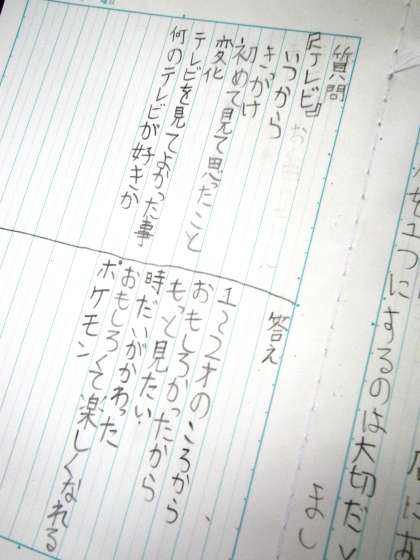 を1つにするのは大切だ
まし
質問
『テレビ』
いつから
きっかけ
初めて見て思ったこと
変化
テレビを見てよかった事
何のテレビが好きか
答え
1〜2才のころから、
おもしろかったから
もっと見たい。
時だいがかわった
おもしろくて楽しくなれる
ポケモン